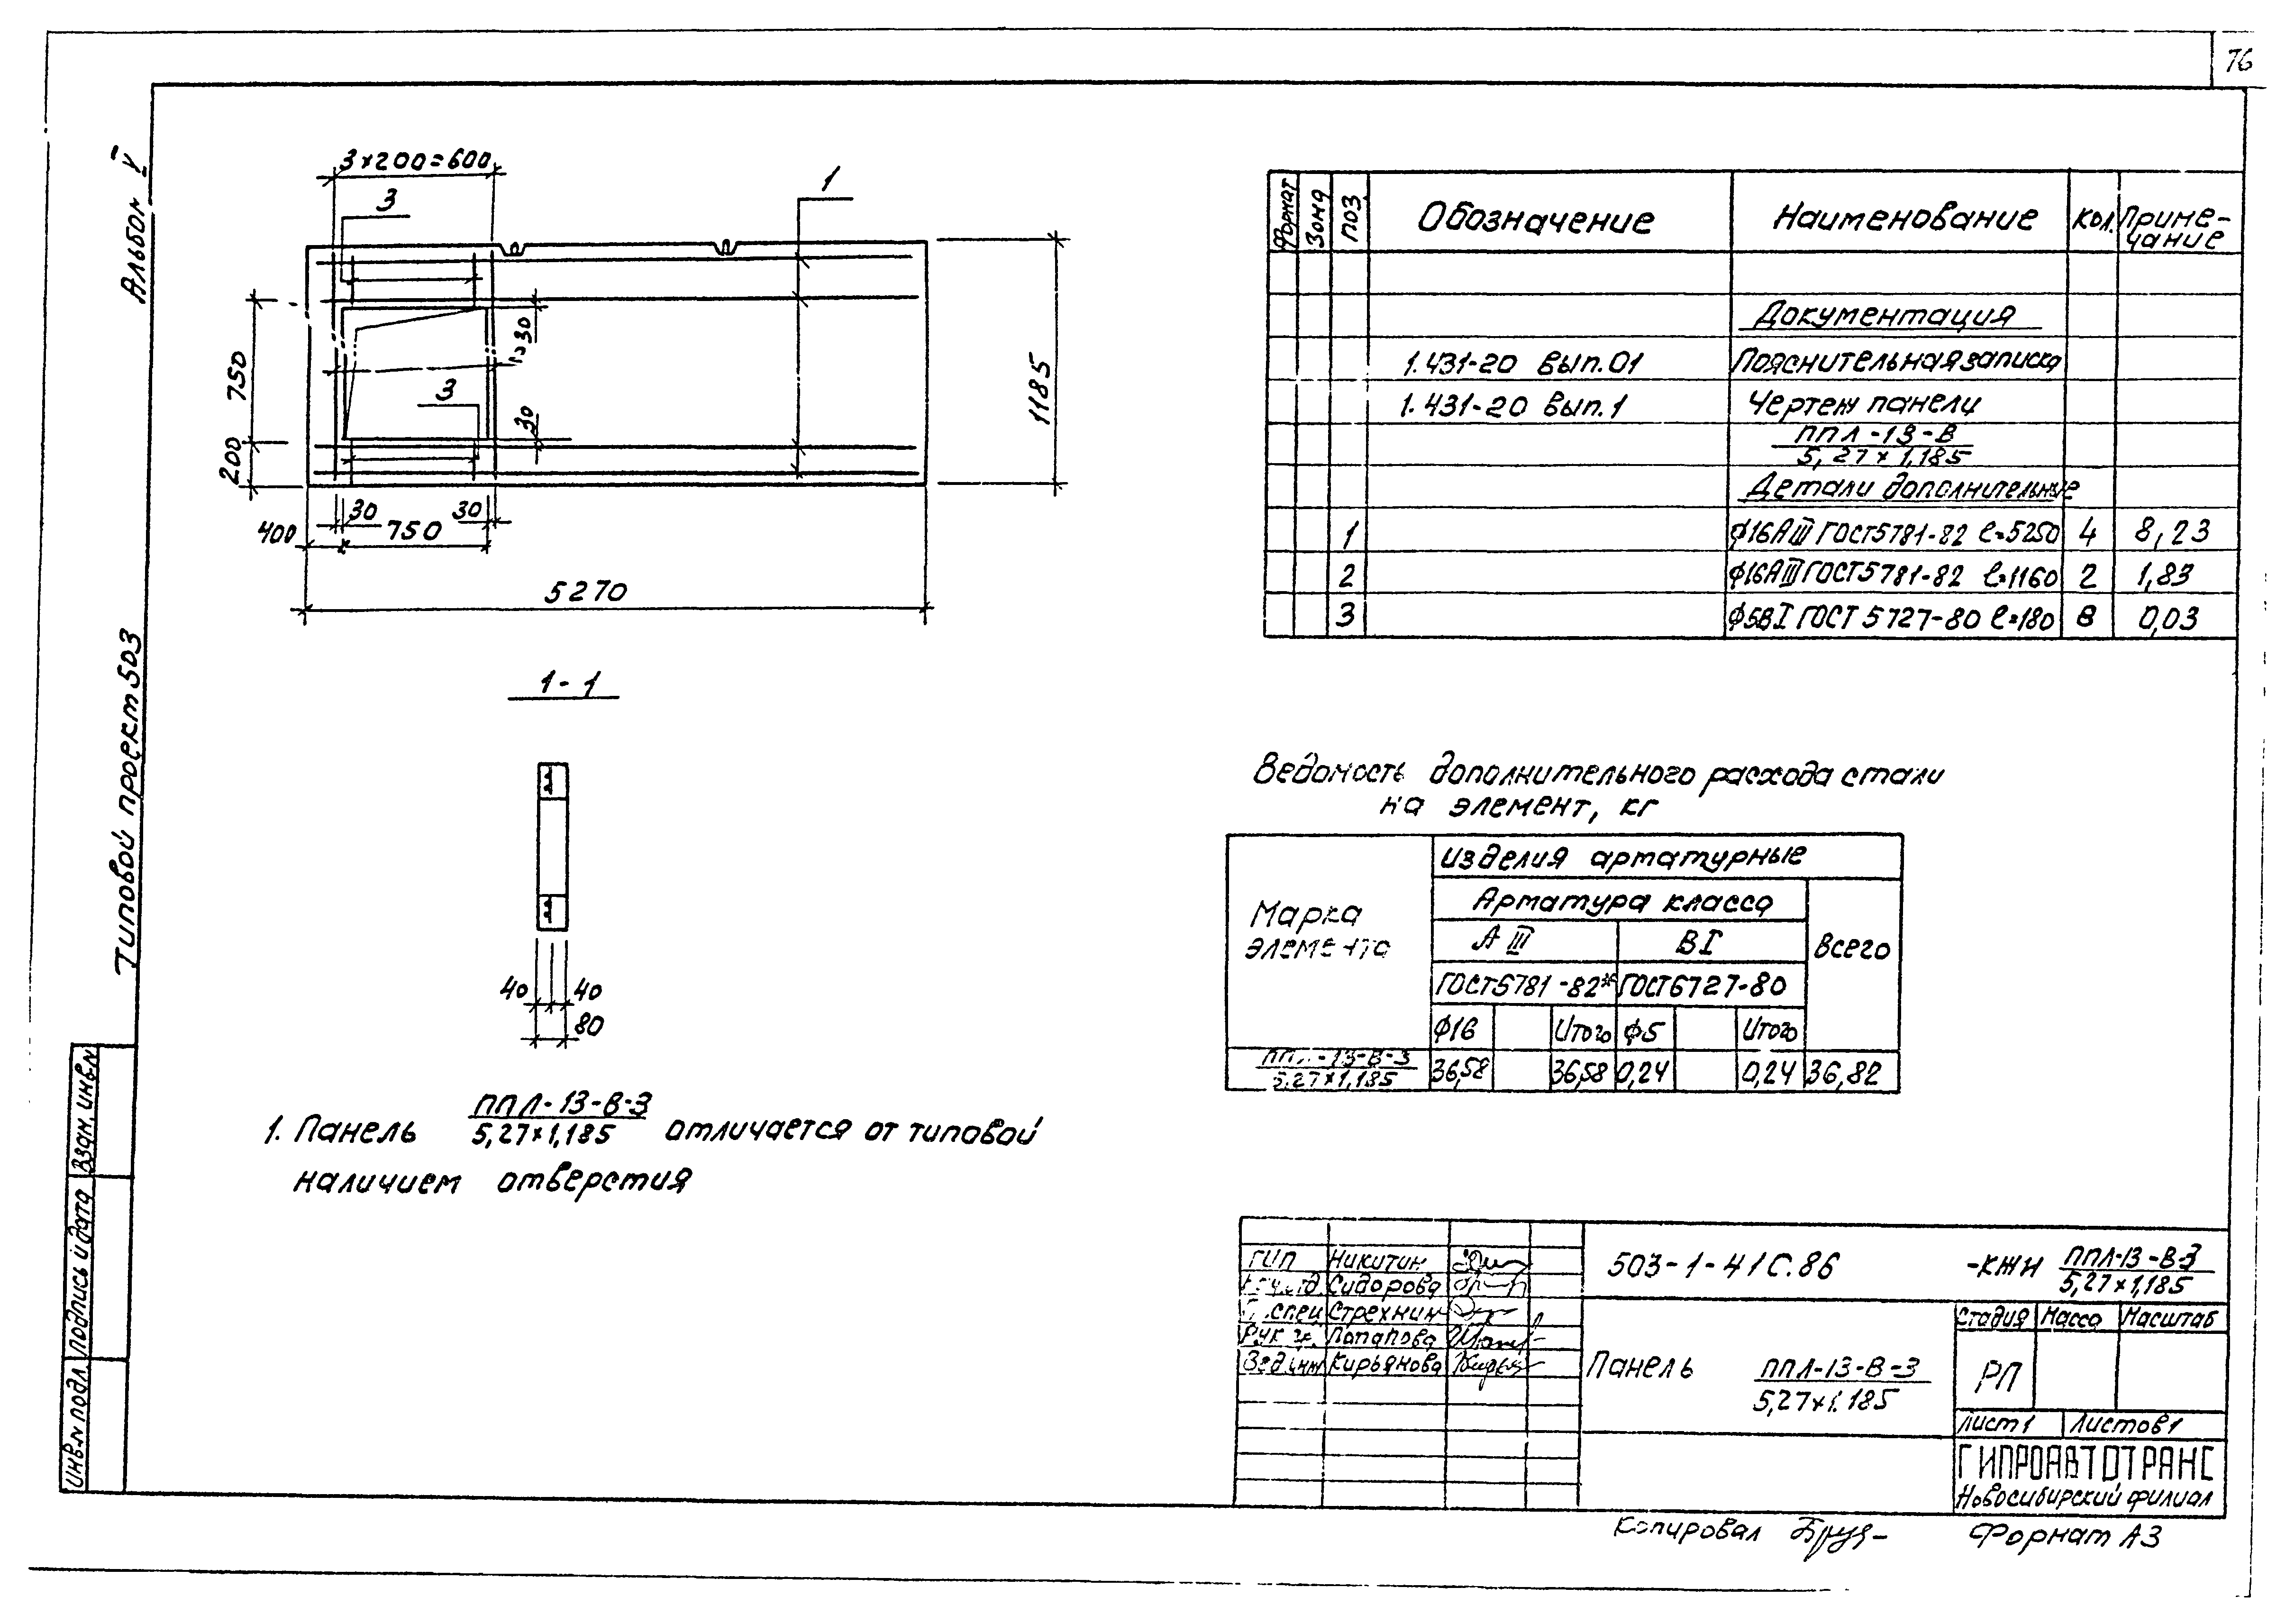 76
Альбом V
Типовой проект 503
3×200=600
3
1
750
200
30
2
3
30
1185
30
30
400
750
5270
1-1
40
40
80
1. Панель ППЛ-13-В-3 отличается от типовой
5,27×1,185
наличием отверстия
Формат Зона Поз. Обозначение Наименование Кол. Приме-
чание
Документация
1.431-20 вып.01 Пояснительная записка
1.431-20 вып.1 Чертеж панели
ППЛ-13-В
5,27×1,185
Детали дополнительные
1 ф16АIII ГОСТ5781-82 l=5250 4 8,23
2 ф16АIII ГОСТ5781-82 l=1160 2 1,83
3 ф5ВI ГОСТ 5727-80 l=180 8 0,03
Ведомость дополнительного расхода стали
на элемент, кг
Марка
элемента
Изделия арматурные
Арматура класса
АIII ВI Всего
ГОСТ5781-82* ГОСТ6727-80
ф16 Итого ф5 Итого
ППЛ-13-В-3
5,27×1,185
36,58 36,58 0,24 0,24 36,82
ГИП Никитин
Нач.отд Сидорова
Гл.спец Стрехнин
Рук гр. Потапова
Вед.инж Кирьянова
503-1-41С.86 -КЖИ ППЛ-13-В-3
5,27×1,185
Панель ППЛ-13-В-3
5,27×1.185
Стадия Масса Масштаб
РП
Лист 1 Листов 1
ГИПРОАВТОТРАНС
Новосибирский филиал
Копировал
Формат А3
Взам. инв.N
Подпись и дата
Инв.N подл.